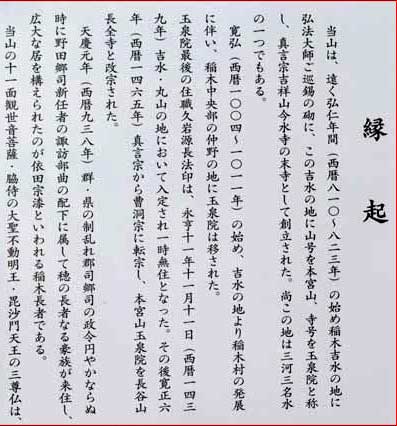 縁起
当山は、遠く弘仁年間（西暦八一〇～八二三年）の始め稲木吉水の地に
弘法大師ご巡錫の砌に、この吉水の地に山号を本宮山、寺号を玉泉院と称
し、真言宗吉祥山今水寺の末寺として創立された。尚この地は三河三名水
の一つでもある。
寛弘（西暦一〇〇四～一〇一一年）の始め、吉水の地より稲木村の発展
に伴い、稲木中央部の仲野の地に玉泉院は移された。
玉泉院最後の住職久岩源長法印は、永享十一年十一月十一日（西暦一四三
九年）吉水・丸山の地において入定され一時無住となった。その後寛正六
年（西暦一四六五年）真言宗から曹洞宗に転宗し、本宮山玉泉院を長谷山
長全寺と改宗された。
天慶元年（西暦九三八年）群・県の制乱れ郡司郷司の政令円やかならぬ
時に野田郷司新任者の諏訪部曲の配下に属して穂の長者なる豪族が来住し、
広大な居を構えられたのが依田宗漆といわれる稲木長者である。
当山の十一面観世音菩薩・脇侍の大聖不動明王・毘沙門天王の三尊仏は、